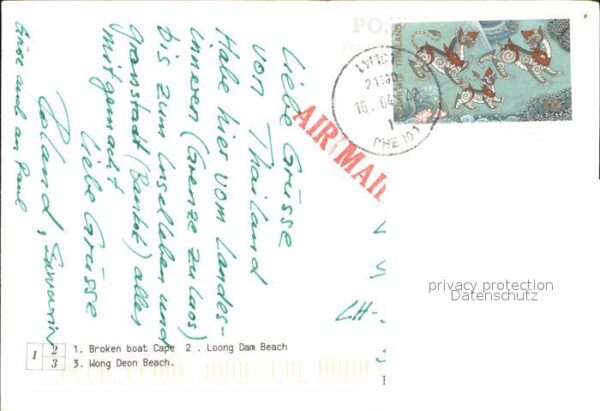 Liebe Grüsse
von Thailand
Habe hier vom Landes-
inneren (Grenze zu Laos)
bis zum Inselleben und
Grossstadt (Bankok) alles
mitgemacht
Liebe Grüsse
Roland,
Grüsse auch an Paul
AIR MAIL
THAILAND
PHE
CH-
privacy protection
Datenschutz
1 2 3
1. Broken boat Cape 2 . Loong Dam Beach
3. Wong Deon Beach.